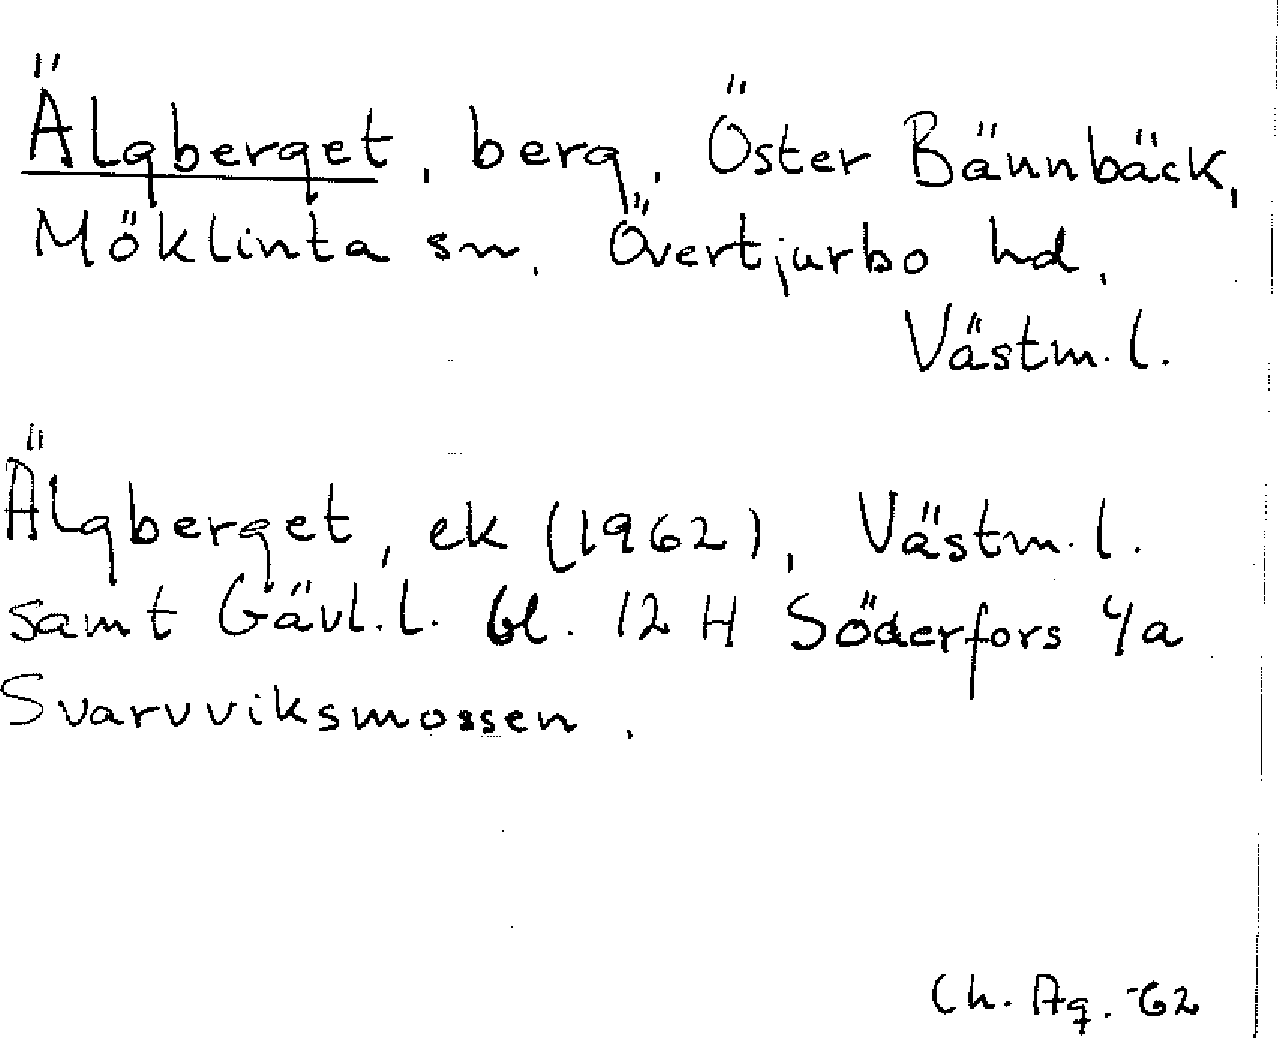 Älgberget, berg, Öster Bännbäck,
Möklinta sn, Övertjurbo hd,
Västm. l.
Älgberget, ek (1962), Västm. l.
samt Gävl. l. bl. 12 H Söderfors 4/a
Svarvviksmossen.
Ch. Ag. -62